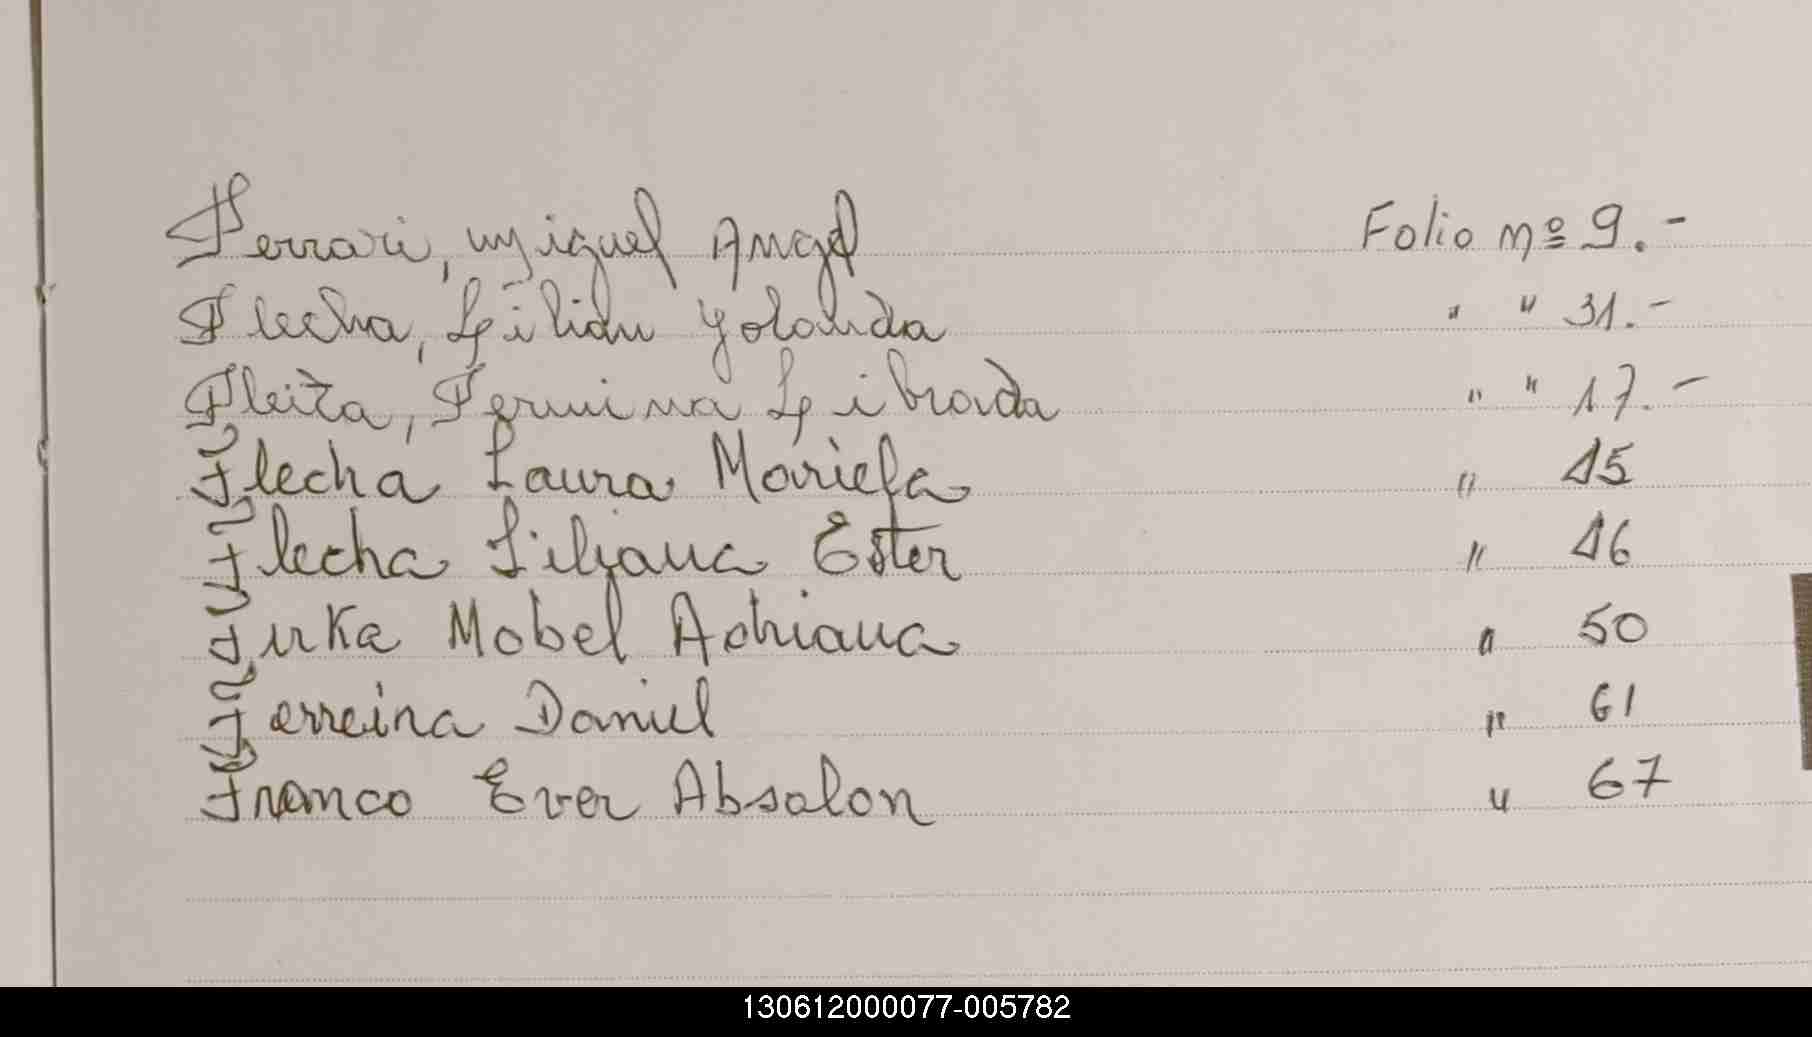 Ferrari, Miguel Angel Folio nº 9.-
Flecha, Lilian Yolanda " " 31.-
Fleita, Fermina Librada " " 17.-
Flecha Laura Mariela " 45
Flecha Liliana Ester " 46
Furka Mabel Adriana " 50
Ferreira Daniel " 61
Franco Ever Absalon " 67
130612000077-005782